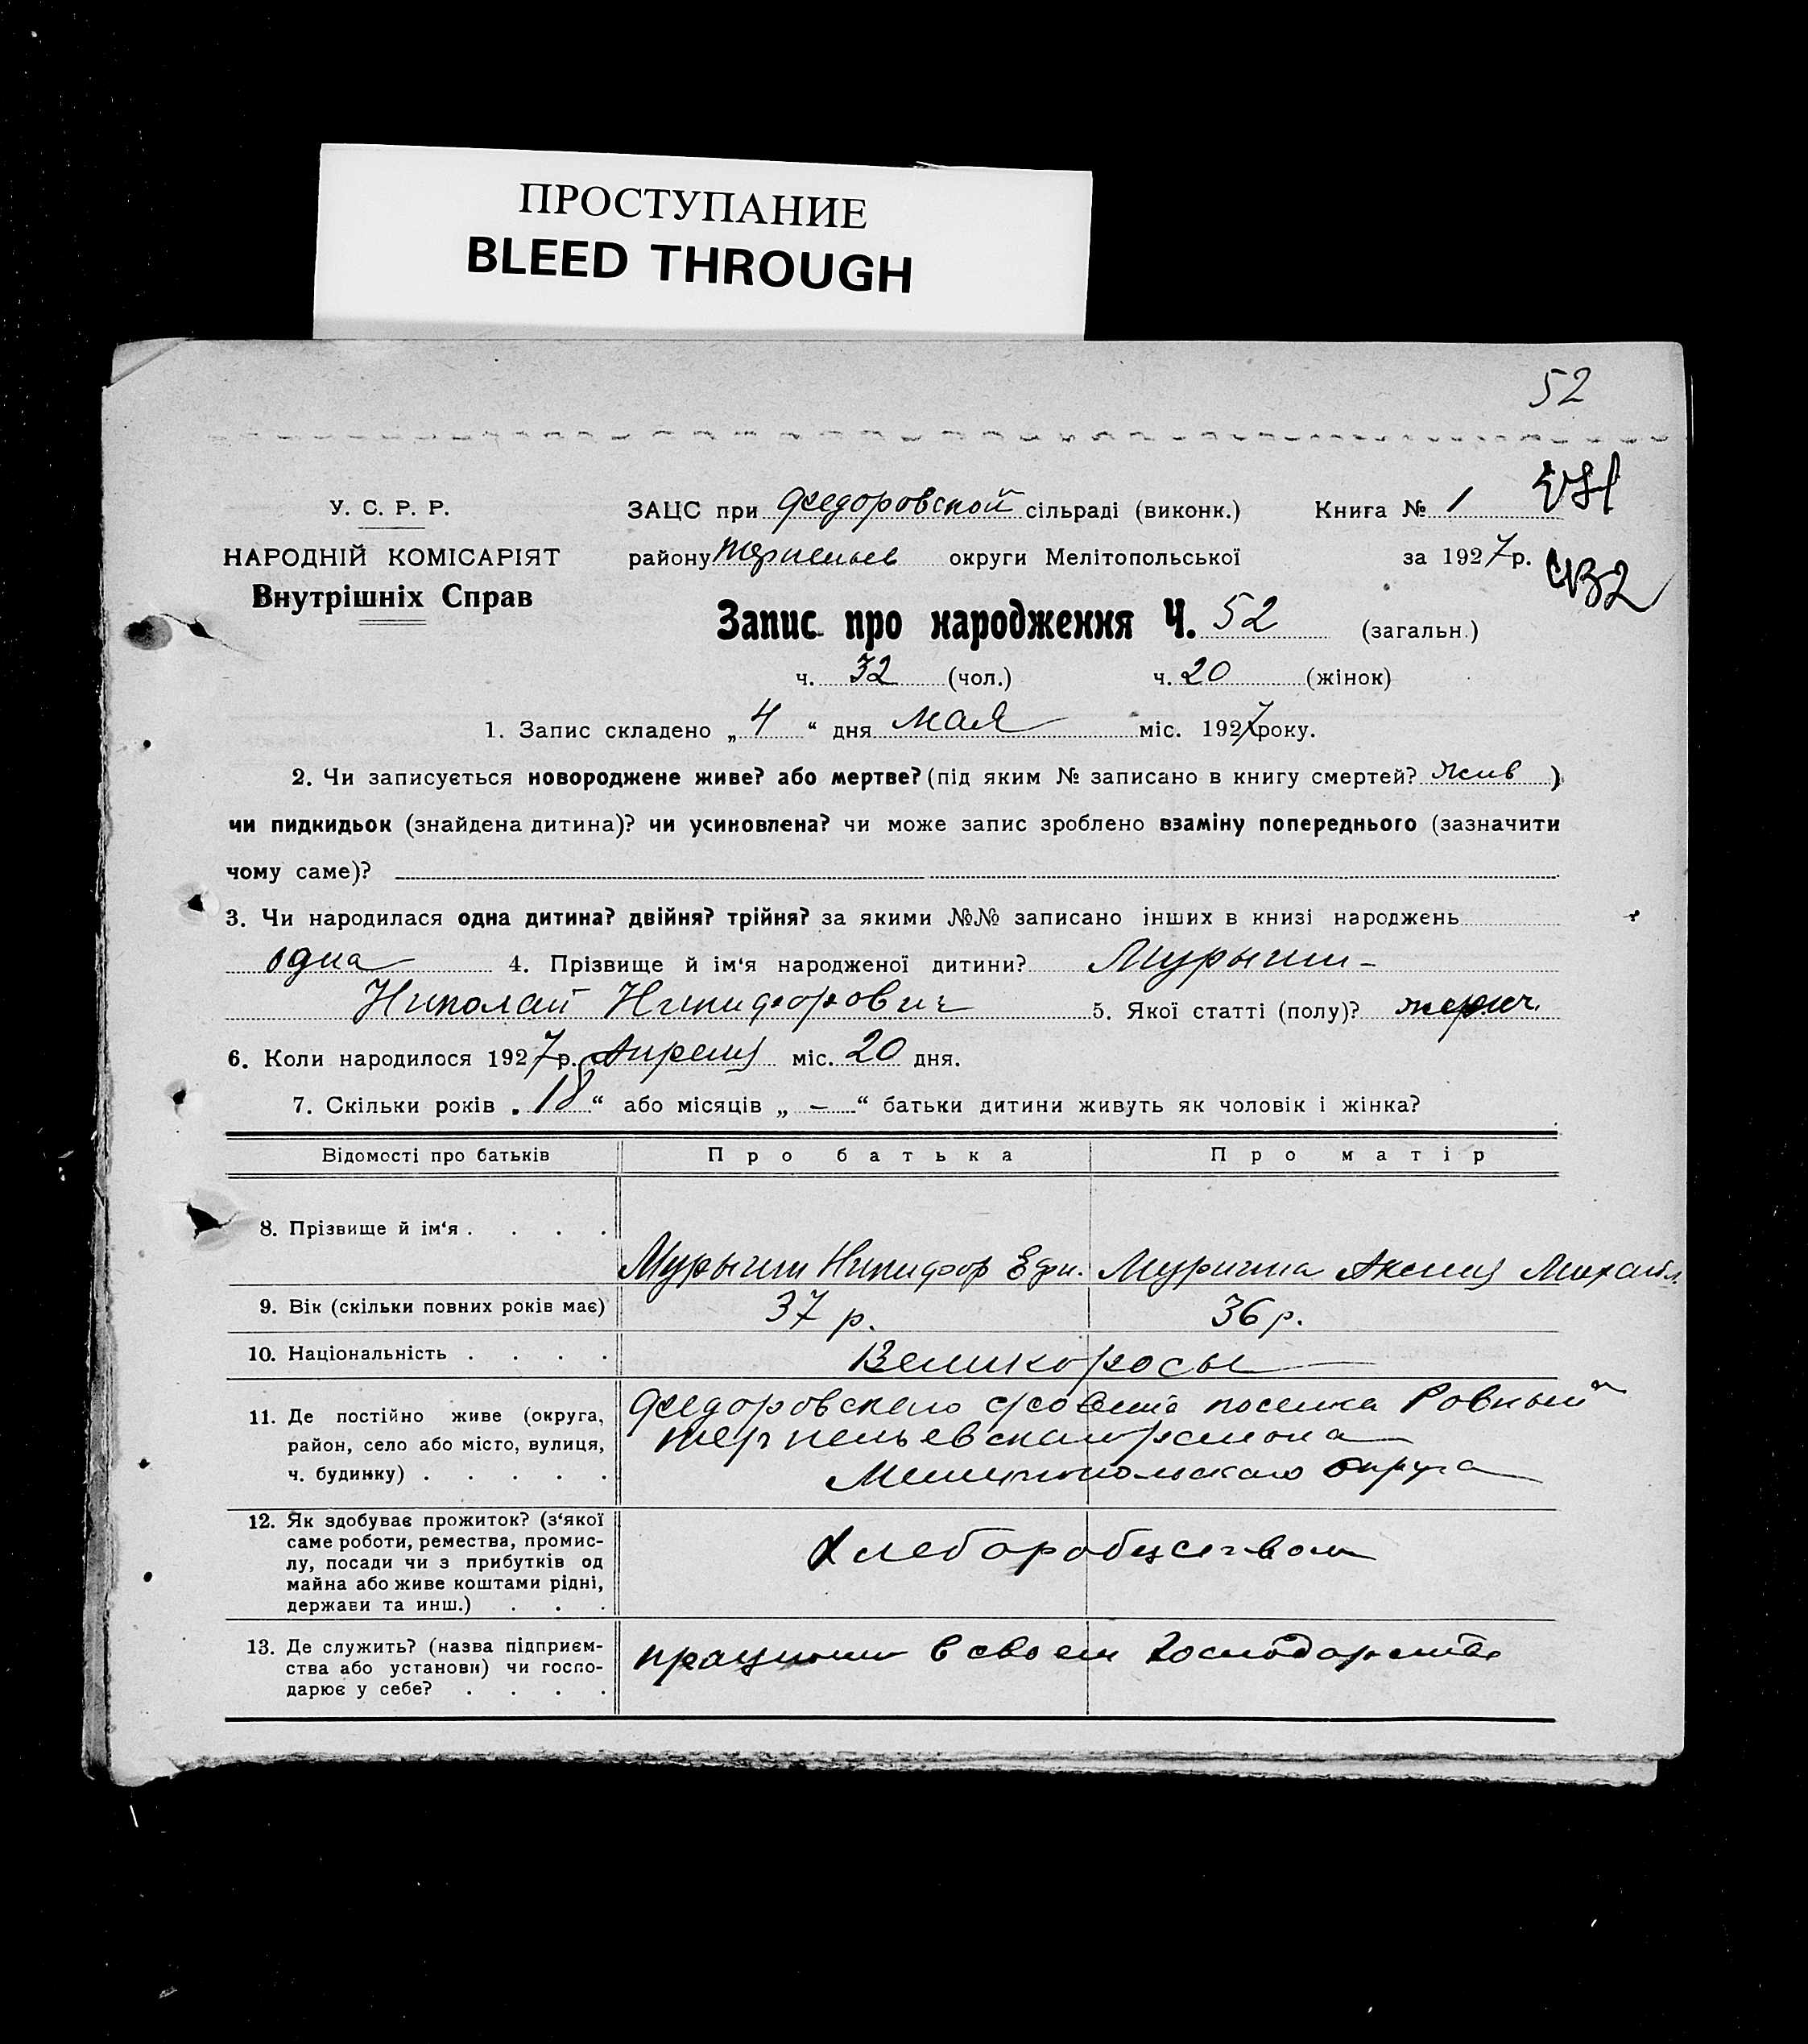 ПРОСТУПАНИЕ
BLEED THROUGH
52
У. С. Р. Р.
НАРОДНІЙ КОМІСАРІЯТ
Внутрішніх Справ
ЗАЦС при Федоровской сільраді (виконк.) Книга № 1
району Терпеньев округи Мелітопольської за 1927 р.
432
Запис про народження Ч. 52 (загальн.)
ч. 32 (чол.) ч. 20 (жінок)
1. Запис складено „ 4 “ дня мая міс. 1927 року.
2. Чи записується новороджене живе? або мертве? (під яким № записано в книгу смертей? жив )
чи пидкидьок (знайдена дитина)? чи усиновлена? чи може запис зроблено взаміну попереднього (зазначити
чому саме)?
3. Чи народилася одна дитина? двійня? трійня? за якими №№ записано інших в книзі народжень
одна 4. Прізвище й ім‘я народженої дитини? Мурыгин -
Николай Никифорович 5. Якої статті (полу)?
6. Коли народилося 1927 р. Апреля міс. 20 дня.
7. Скільки років „ 18 “ або місяців „ — “ батьки дитини живуть як чоловік і жінка?
Відомості про батьків Про батька Про матір
8. Прізвище й ім‘я . . . . Мурыгин Никифор Ефи. Муригина Аксиня Михайл.
9. Вік (скільки повних років має) 37 р. 36 р.
10. Національність . . . . Великоросы
11. Де постійно живе (округа, район, село або місто, вулиця, ч. будинку) . . . . . Федоровского поселка Ровный
Терпеньевского района
Мелитопольскаго округа
12. Як здобуває прожиток? (з‘якої саме роботи, ремества, промислу, посади чи з прибутків од майна або живе коштами рідні, держави та инш.) . . . Хлеборобством
13. Де служить? (назва підприємства або установи) чи господарює у себе? . . . . в своем господарстве